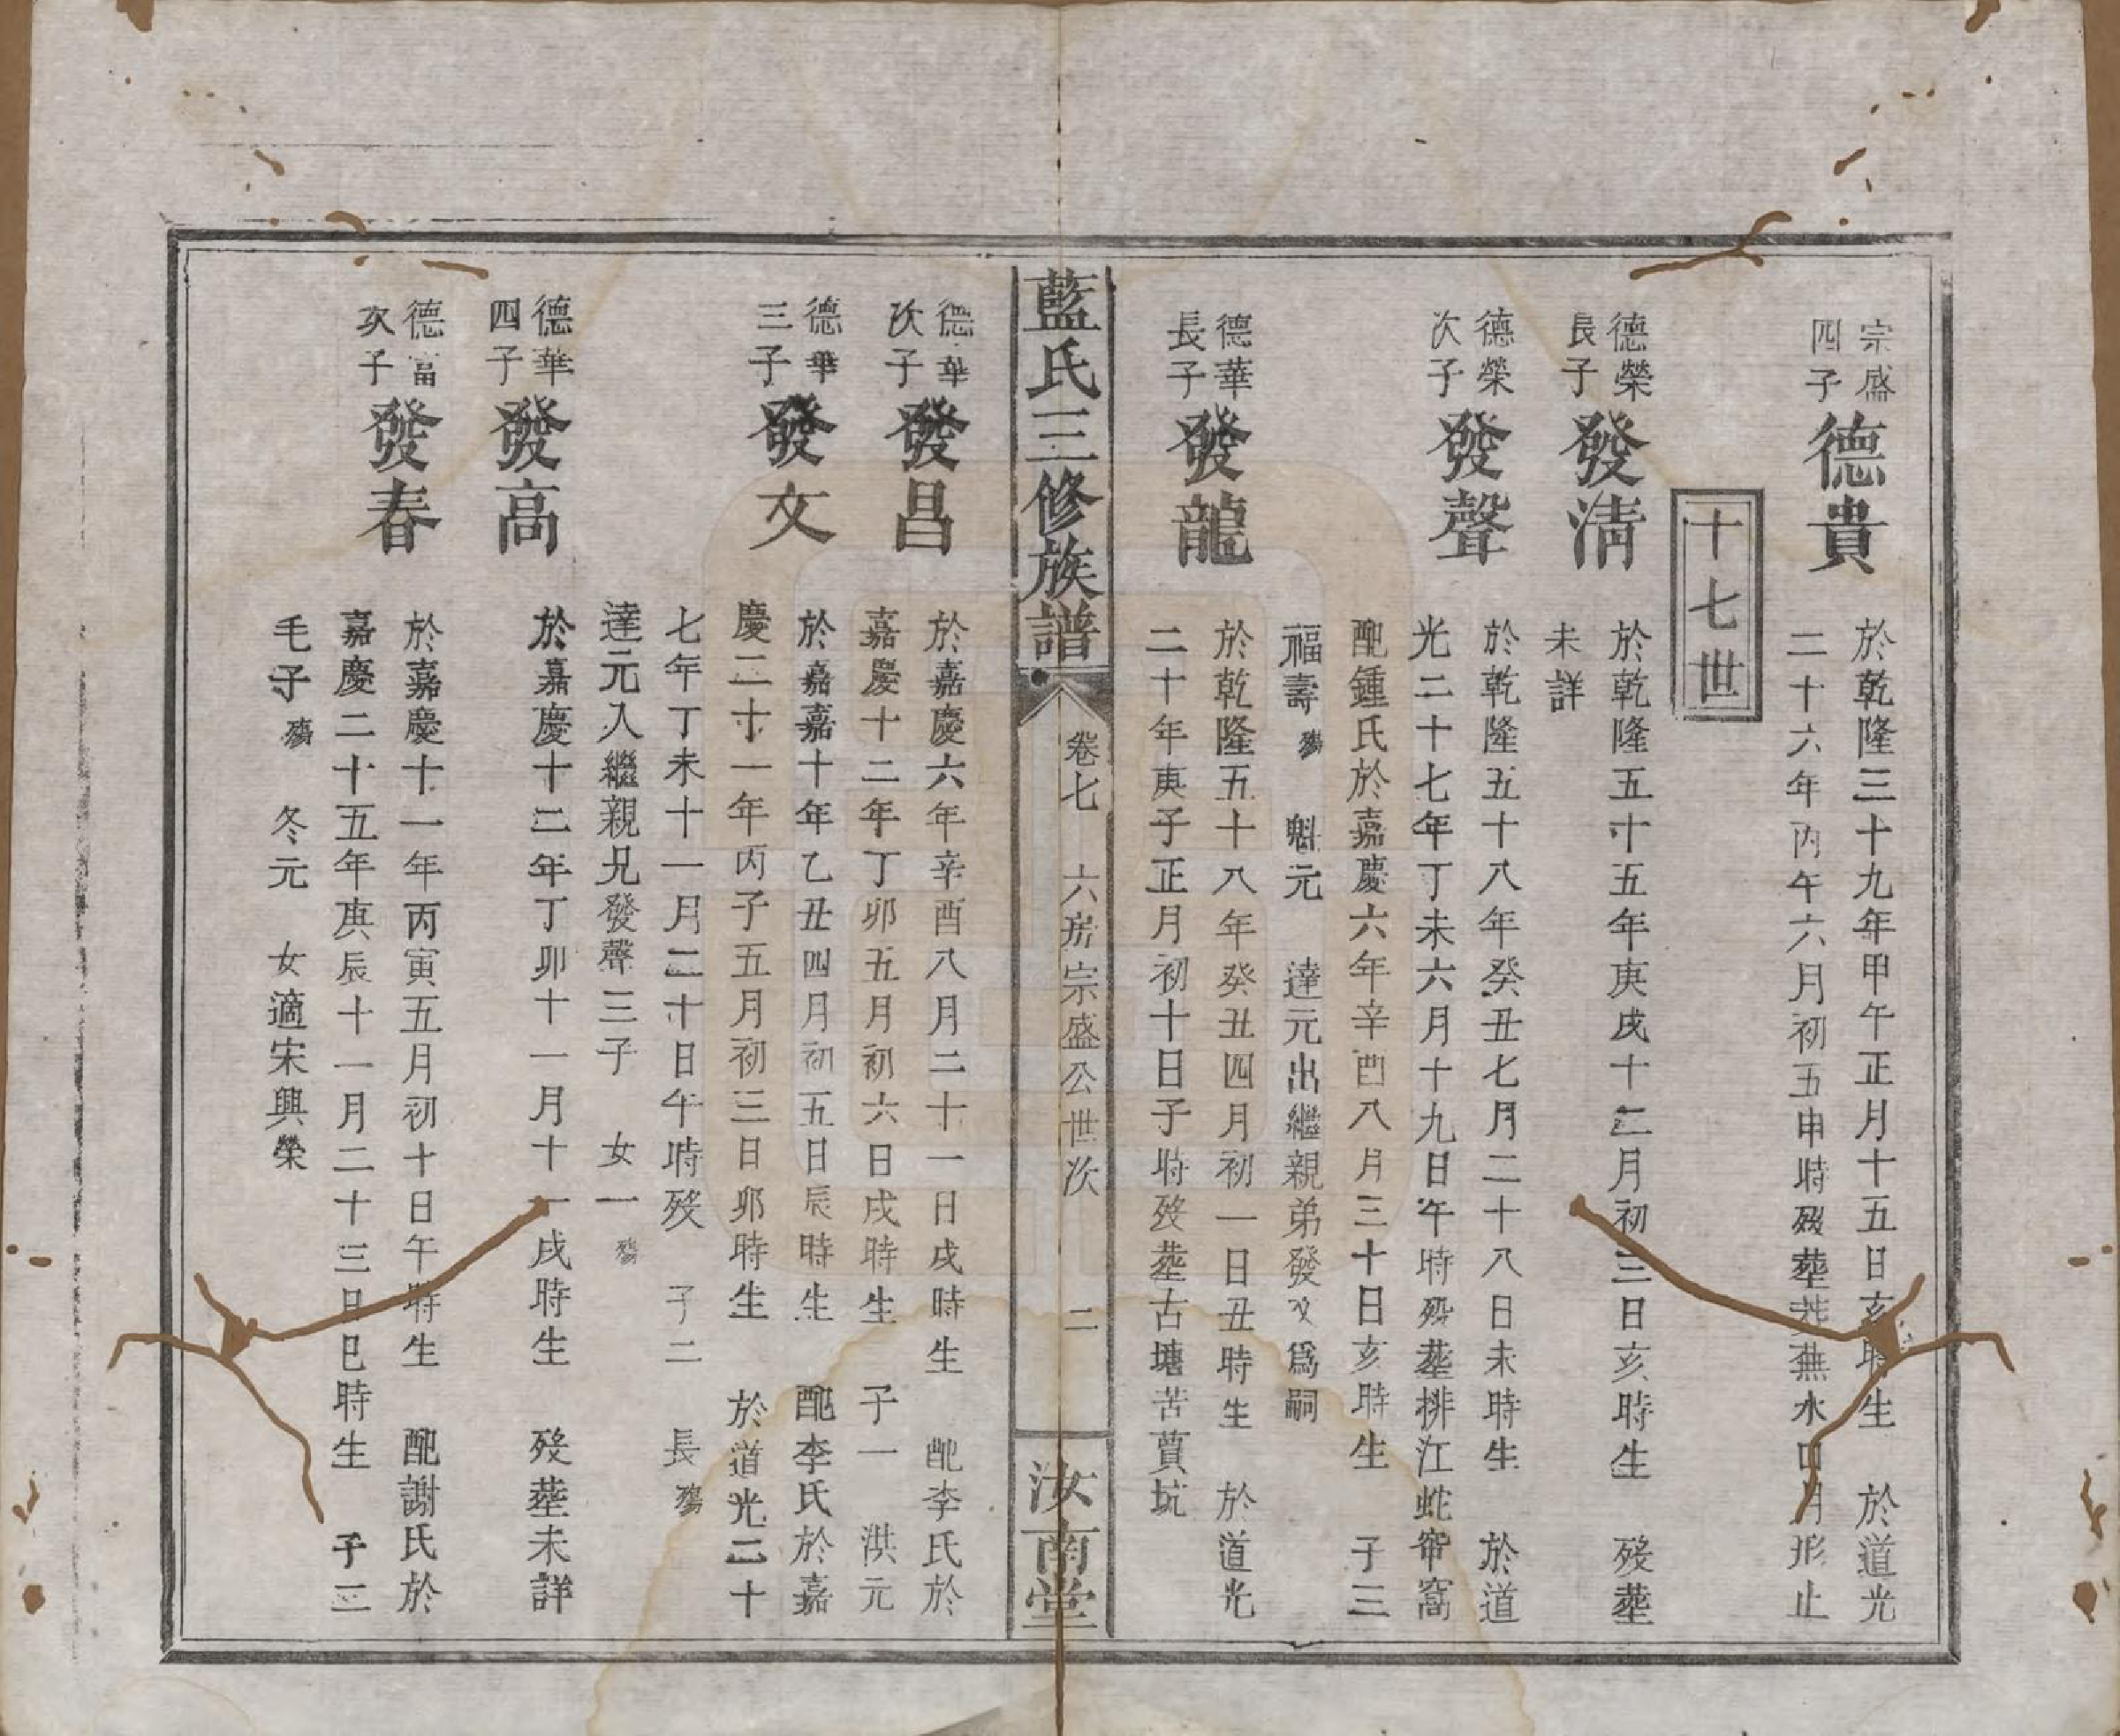 宗盛
四子
德貴
於乾隆三十九年甲午正月十五日亥時生 於道光
二十六年丙午六月初五申時歿葬 蕪水口月形止
十七世
德榮
長子
發清
於乾隆五十五年庚戌十二月初三日亥時生 歿葬
未詳
德榮
次子
發聲
於乾隆五十八年癸丑七月二十八日未時生 於道
光二十七年丁未六月十九日午時歿葬排江蛇帘窩
配鍾氏於嘉慶六年辛酉八月三十日亥時生 子三
福壽殤 魁元 達元出繼親弟發文爲嗣
德華
長子
發龍
於乾隆五十八年癸丑四月初一日丑時生 於道光
二十年庚子正月初十日子時歿葬古塘苦蕒坑
藍氏三修族譜
卷七 六房宗盛公世次 二
汝南堂
德華
次子
發昌
於嘉慶六年辛酉八月二十一日戌時生 配李氏於
嘉慶十二年丁卯五月初六日戌時生 子一 洪元
德華
三子
發文
於嘉嘉十年乙丑四月初五日辰時生 配李氏於嘉
慶二十一年丙子五月初三日卯時生 於道光二十
七年丁未十一月二十日午時歿 子二 長殤
達元入繼親兄發聲三子 女一殤
德華
四子
發高
於嘉慶十二年丁卯十一月十一戌時生 歿葬未詳
德富
次子
發春
於嘉慶十一年丙寅五月初十日午時生 配謝氏於
嘉慶二十五年庚辰十一月二十三日巳時生 子三
毛子殤 冬元 女適宋興榮